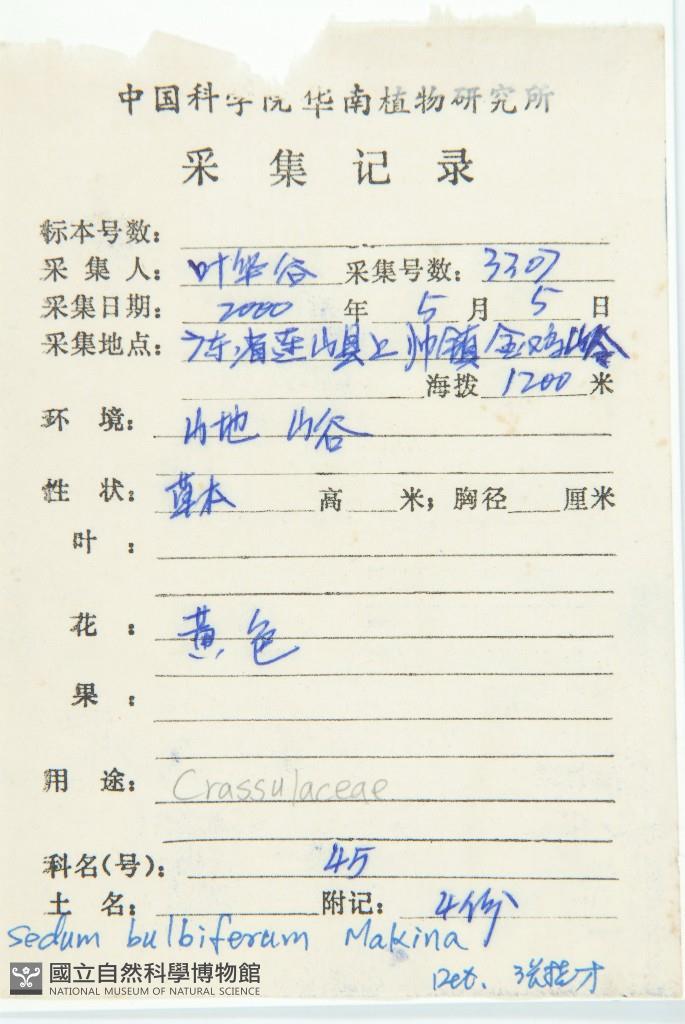 中国科学院华南植物研究所
采集记录
标本号数:
采集人: 叶华谷 采集号数: 3307
采集日期: 2000 年 5 月 5 日
采集地点: 广东省连山县上帅镇金鸡山谷
海拨 1200 米
环境: 山地 山谷
性状: 草本 高 米; 胸径 厘米
叶:
花: 黄色
果:
用途: Crassulaceae
科名(号): 45
土名: 附记: 4份
Sedum bulbiferum Makina
Det.
國立自然科學博物館
NATIONAL MUSEUM OF NATURAL SCIENCE